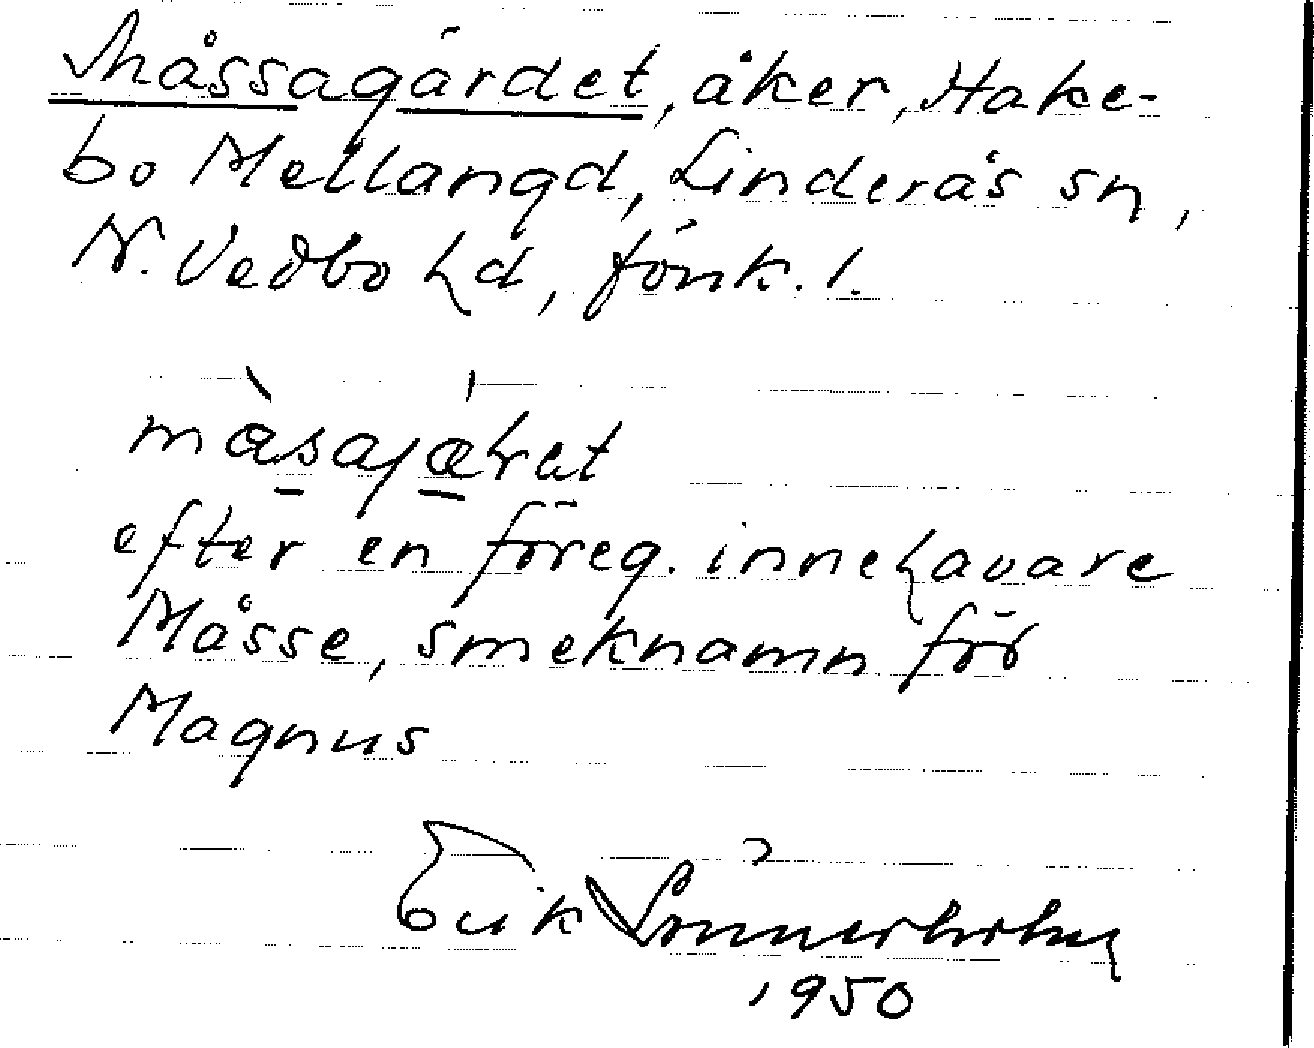 Måssagärdet, åker, Hake-
bo Mellangd, Linderås sn,
N. Vedbo hd, Jönk. l.
efter en föreg. innehavare
Måsse, smeknamn för
Magnus
Erik
1950